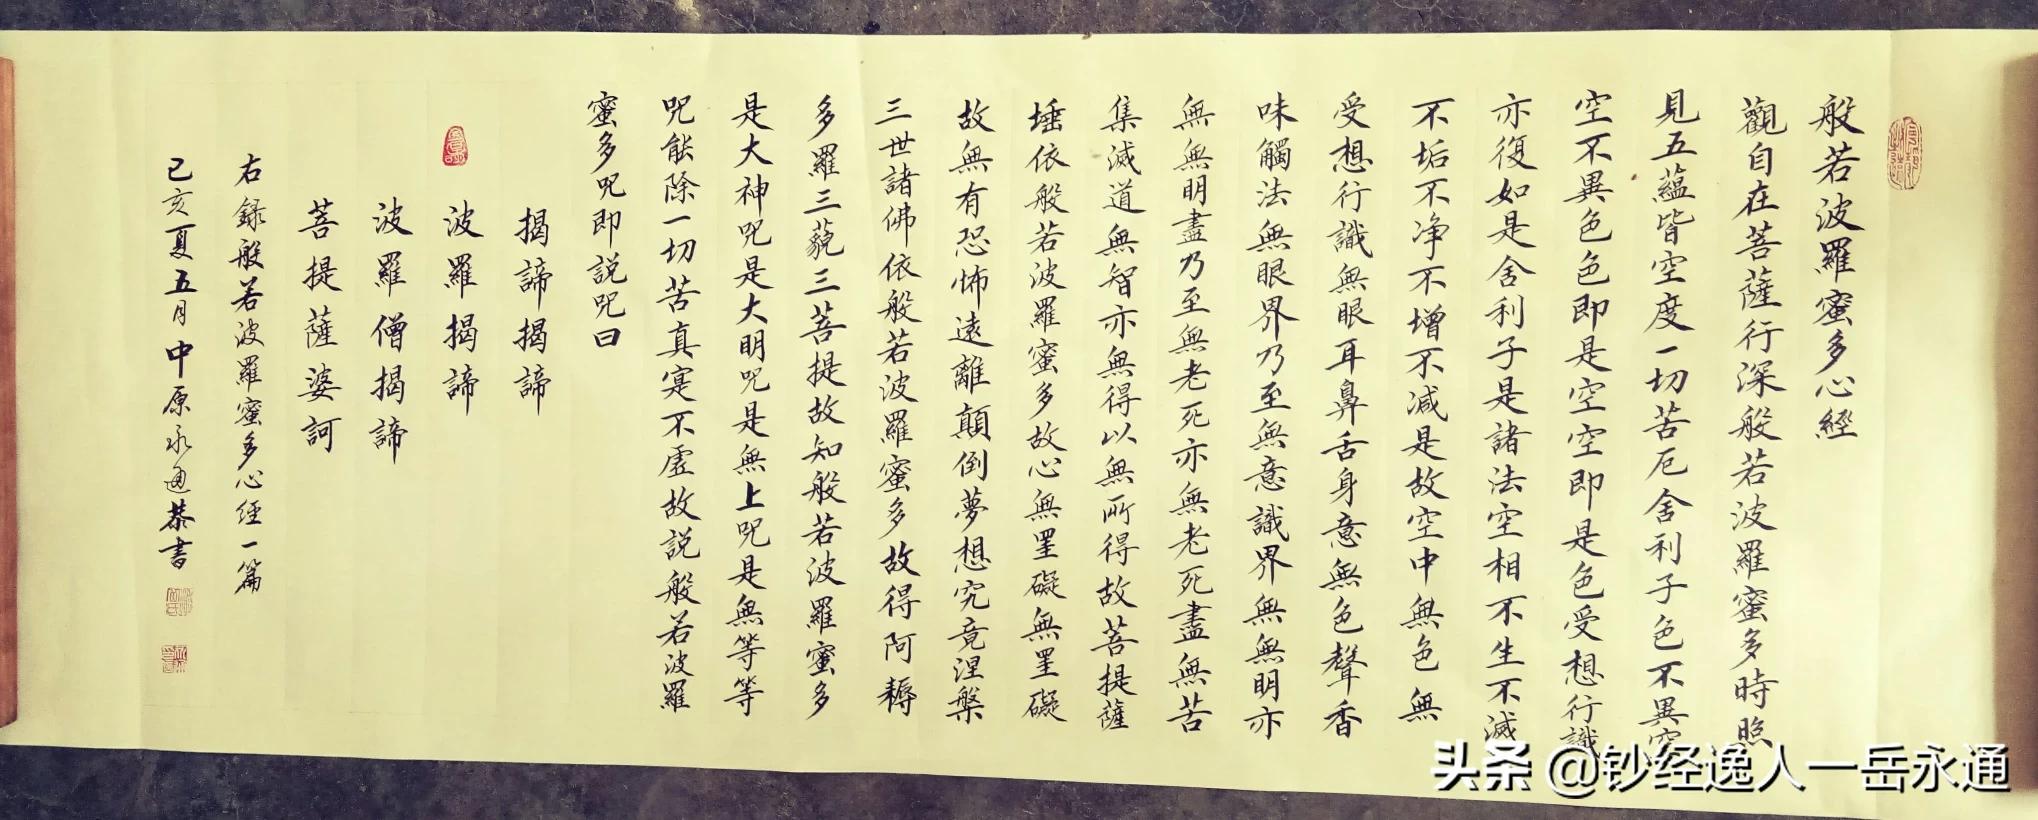 般若波羅蜜多心經
觀自在菩薩行深般若波羅蜜多時照
見五蘊皆空度一切苦厄舍利子色不異空
空不異色色即是空空即是色受想行識
亦復如是舍利子是諸法空相不生不滅
不垢不净不增不减是故空中無色無
受想行識無眼耳鼻舌身意無色聲香
味觸法無眼界乃至無意識界無無明亦
無無明盡乃至無老死亦無老死盡無苦
集滅道無智亦無得以無所得故菩提薩
埵依般若波羅蜜多故心無罣礙無罣礙
故無有恐怖遠離顛倒夢想究竟涅槃
三世諸佛依般若波羅蜜多故得阿耨
多羅三藐三菩提故知般若波羅蜜多
是大神咒是大明咒是無上咒是無等等
咒能除一切苦真寔不虛故説般若波羅
蜜多咒即説咒曰
揭諦揭諦
波羅揭諦
波羅僧揭諦
菩提薩婆訶
右録般若波羅蜜多心經一篇
己亥夏五月中原永通恭書
头条 @钞经逸人一岳永通